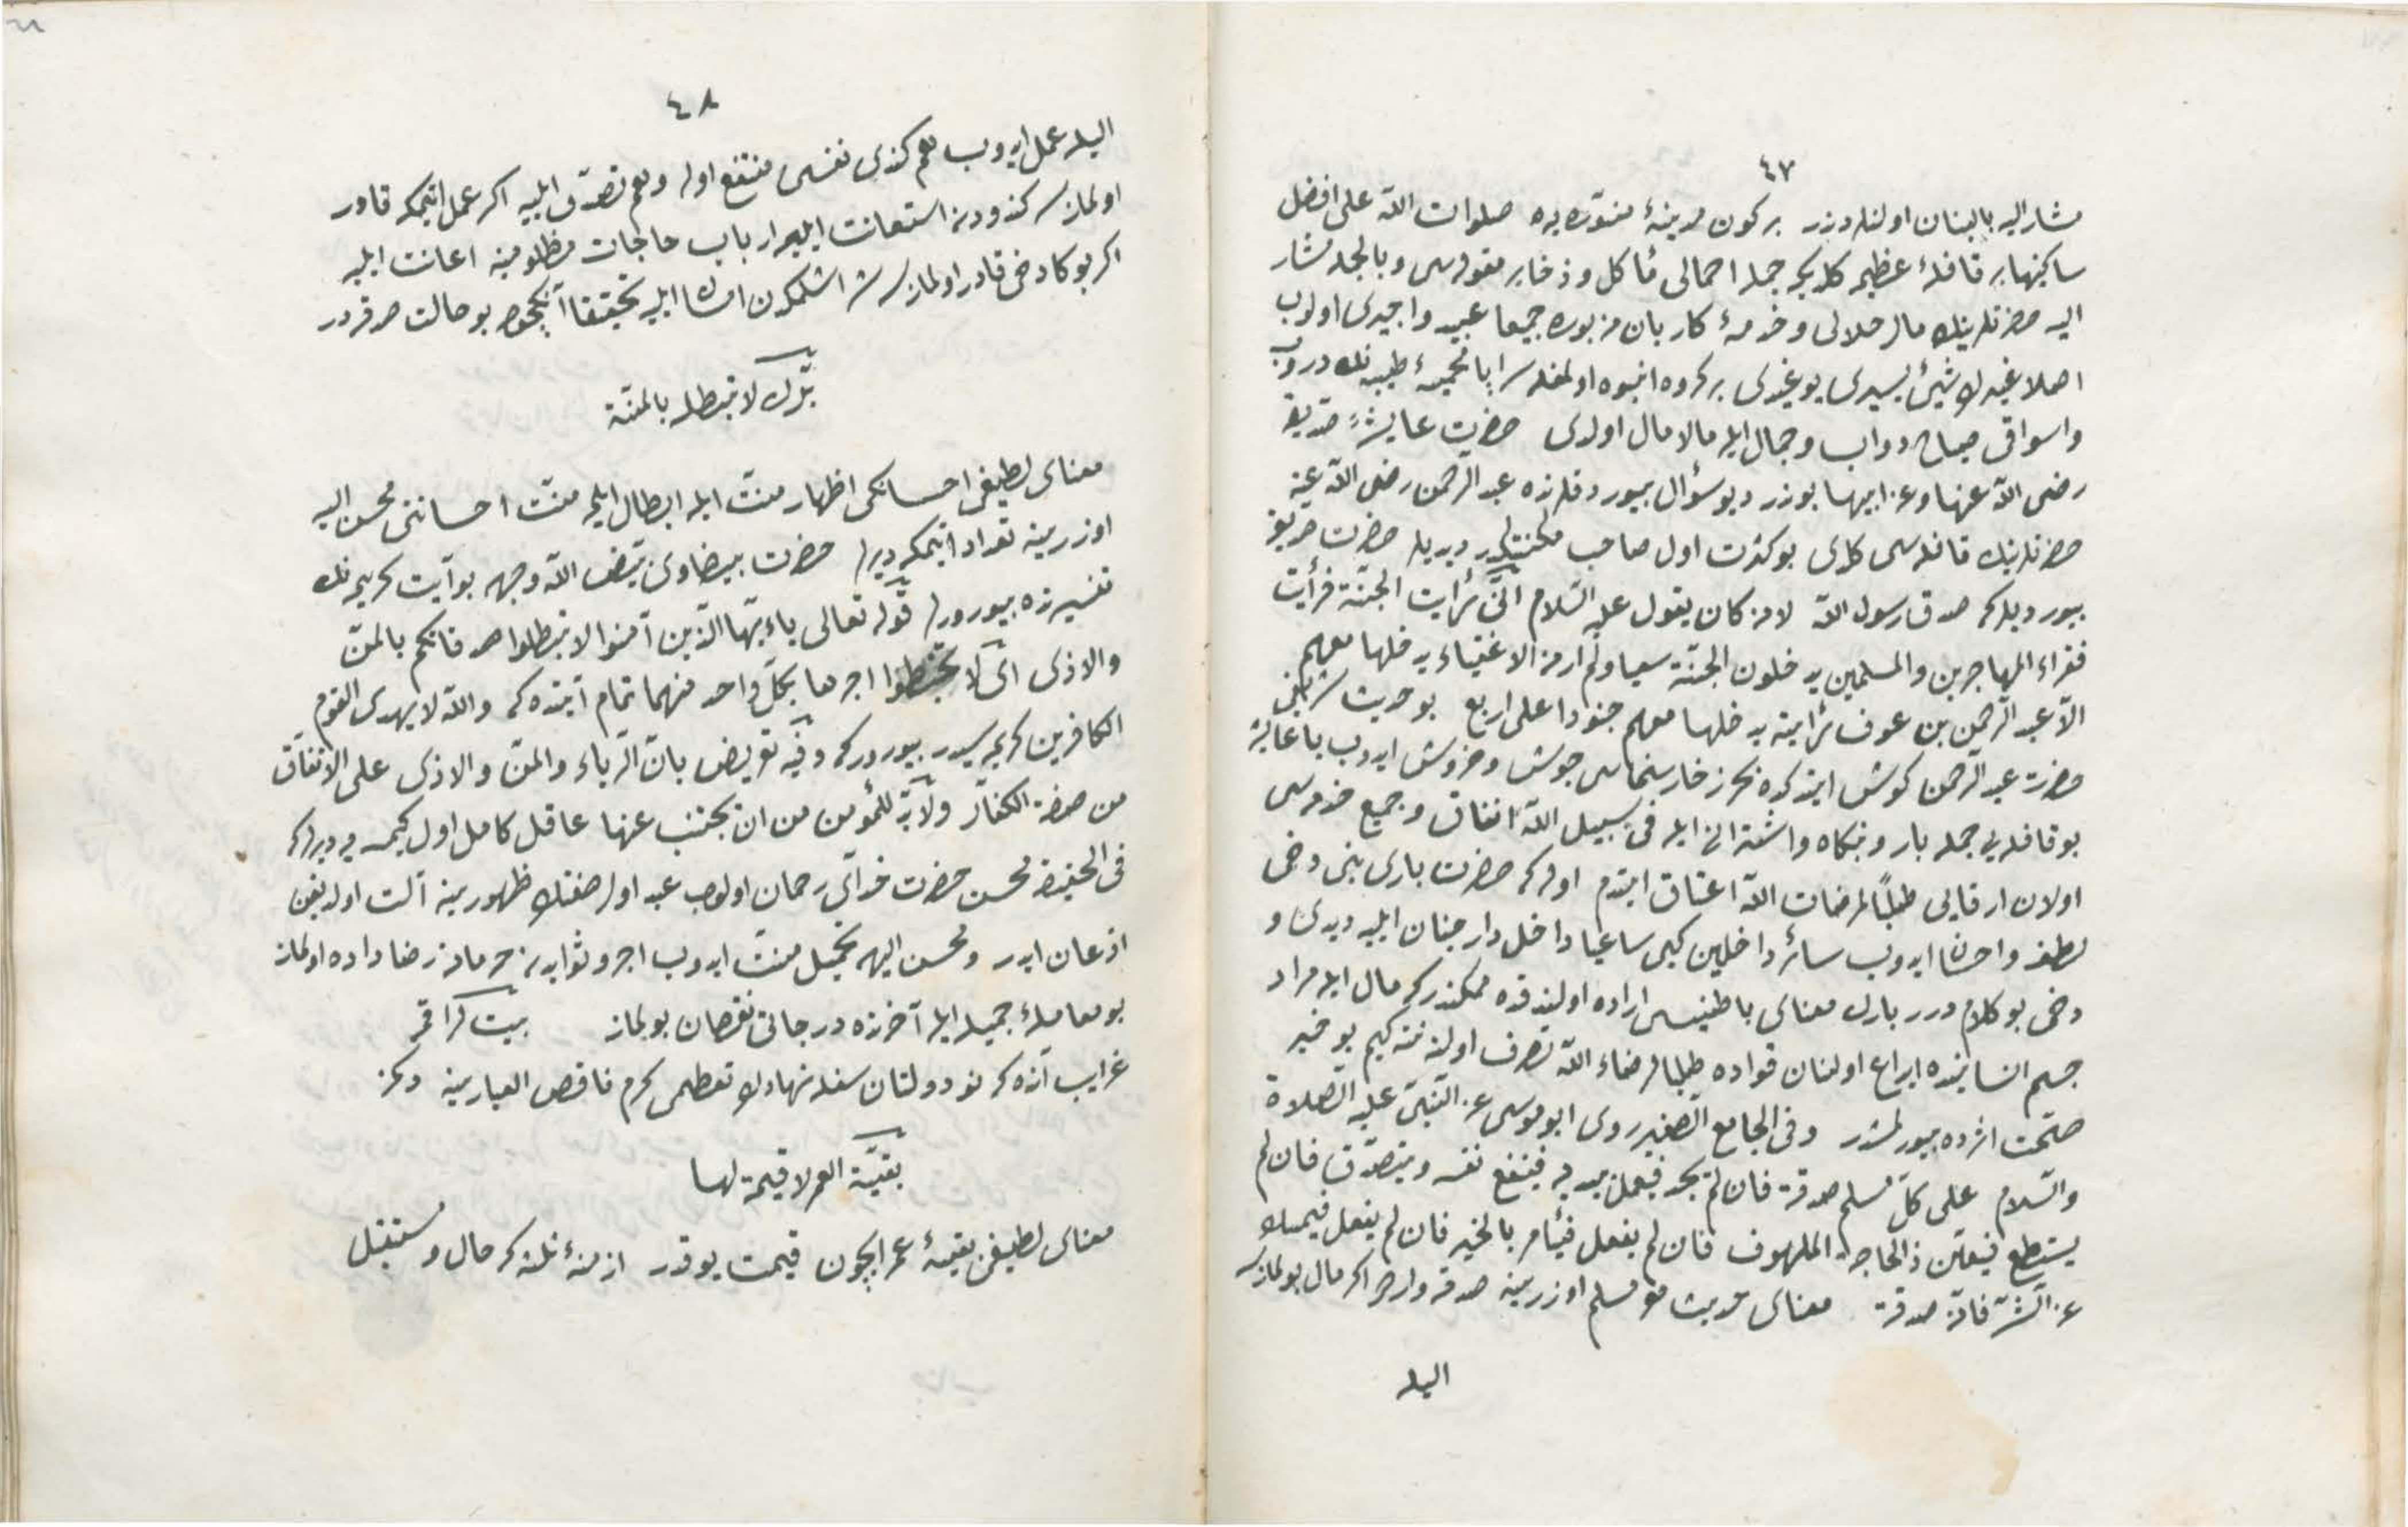 ٤٧
مشار اليه بالبنان اولنلردندر بر كون مدينۀ منوره يه صلوات الله على افضل
ساكنها بر قافلۀ عظيمه كلديكه جمله احمالى مأكل و ذخاير مقوله سى و بالجمله مشار
اليه حضرتلرينك مال حلالى و خدمۀ كاربان مزبوره جميعا عبيد واجيرى اولوب
اصلا غيرك شئ يسيرى يوغيدى بر كروه انبوه اولمغله سراپا محميۀ طيبه نك دروب
واسواقى دواب و جمال ايله مالامال اولدى حضرت عايشۀ صديقه
رضى الله عنها وعن ابيها بو نه در ديو سؤال بيوردقلرنده عبد الرحمن رضى الله عنه
حضرتلرينك قافله سى كلدى بو كثرت اول صاحب مكنتكدر ديديلر حضرت صديقه
بيورديلركه صدق رسول الله لانه كان يقول عليه السلام انى رأيت الجنة فرأيت
فقراء المهاجرين والمسلمين يدخلون الجنة سعيا ولم ار من الاغنياء يدخلها معهم
الا عبد الرحمن بن عوف رأيته يدخلها معهم حبوا على اربع بو حديث شريفى
حضرت عبد الرحمن كوش ايتدكده بحر زخار سخاسى جوش و خروش ايدوب يا عايشه
بو قافله يى جمله بار و بنكاه واشترانى ايله فى سبيل الله انفاق و جميع خدمه سى
اولان ارقايى طلبا لمرضات الله اعتاق ايتدم اوله كه حضرت بارى بنى دخى
لطف و احسان ايدوب سائر داخلين كبى ساعيا داخل دار جنان ايليه ديدى و
دخى بو كلام درر بارك معناى باطنيسى اراده اولندقده ممكندركه مال ايله مراد
جسم انسانيده ابداع اولنان قواده طلبا لرضاء الله تصرف اولنه نته كيم بو خبر
صحت اثرده بيورلمشدر وفى الجامع الصغير روى ابو موسى عن النبى عليه الصلاة
والسلام على كل مسلم صدقة فان لم يجد فيعمل بيديه فينفع نفسه ويتصدق فان لم
يستطع فيعين ذا الحاجة الملهوف فان لم يفعل فيأمر بالخير فان لم يفعل فيمسك
عن الشر فانه صدقة معناى حديث هو مسلم اوزرينه صدقه واردر اكر مال بولمازسه
اليله
٤٨
اليله عمل ايدوب هم كندى نفسى منتفع اوله و هم تصدق ايليه اكر عمل ايتمكه قادر
اولمازسه كندودن استعانت ايليه ارباب حاجات مظلومينه اعانت ايليه
اكر بوكا دخى قادر اولمازسه شر اشلمكدن امساك ايليه تحقيقا آنكچون بو حالت صدقه در
برك لا تبطله بالمنة
معناى لطيفى احسانكى اظهار منت ايله ابطال ايلمه منت احساننى محسن اليه
اوزرينه تعداد ايتمكه ديرلر حضرت بيضاوى بيض الله وجهه بو آيت كريمه نك
تفسيرنده بيوررلر قوله تعالى ياءيها الذين آمنوا لا تبطلوا صدقاتكم بالمن
والاذى اى لا تحبطوا اجرها بكل واحد منهما تمام آيتده كه والله لا يهدى القوم
الكافرين كريمه سيدر بيوررركه وفيه تعريض بان الرياء والمن والاذى على الانفاق
من صفة الكفار ولا بد للمؤمن من ان يجتنب عنها عاقل كامل اول كيمسه يه ديرلركه
فى الحقيقه محسن حضرت خداى رحمان اولوب عبد اول صفتك ظهورينه آلت اولديغن
اذعان ايدر و محسن اليهه تحميل منت ايدوب اجر و ثوابدن حرمانه رضا داده اولماز
بو معاملۀ جميله ايله آخرتده درجاتى نقصان بولماز بيت
غرايب آنده كه نو دولتان سفله نهادك تعظمى كرم ناقص العيارينه دكمز
بقية العمر لا قيمة لها
معناى لطيفى بقيۀ عمر ايچون قيمت يوقدر ازمنۀ ثلثه كه حال و مستقبل